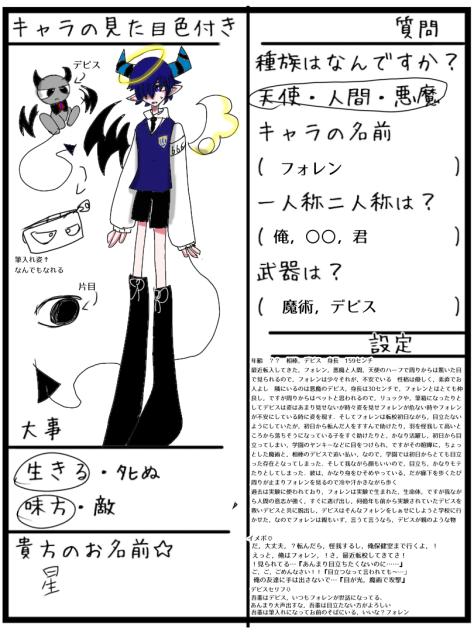 キャラの見た目色付き
デビス
666
筆入れ姿↑
なんでもなれる
片目
大事
生きる・タヒぬ
味方・敵
貴方のお名前☆
星
質問
種族はなんですか?
天使・人間・悪魔
キャラの名前
( フォレン )
一人称二人称は?
( 俺,〇〇,君 )
武器は?
( 魔術,デビス )
設定
年齢 ?? 相棒、デビス 身長 159センチ
最近転入してきた、フォレン、悪魔と人間、天使のハーフで周りからは驚いた目
で見られるので、フォレンは少々それが、不安でいる 性格は優しく、素直でお
人よし 隣にいるのは悪魔のデビス、身長は30センチで、フォレンとはとても仲
良し、ですが周りからはペットと思われるので、リュックや、筆箱になったりと
してデビスは姿はあまり見せないが時々姿を見せフォレンが危ない時やフォレン
が不安にしている時に姿を現す、そしてフォレンは転校初日ながら、目立たない
ようにしていたが、初日から転んだ人をすすんで助けたり、羽を怪我して高いと
ころから落ちそうになっている子をすぐ助けたりと、かなり活躍し、初日から目
立ってしまい、学園のヤンキーなどに目をつけられ、ですがその喧嘩に、ちょっ
とした魔術と、相棒のデビスで追い払い、なので、学園では初日からとても目立
った存在となってしまった、そして我ながら顔もいいので、目立ち、かなりモテ
たりとしてしまった、彼は、かなり身をひそめやっている、だが廊下を歩くたび
周りが止まりフォレンを見るので冷や汗かきながら歩く
過去は実験に使われており、フォレンは実験で生まれた、生命体、ですが我なが
ら人間の意志が強く、すぐに逃げ出し、何億年も前から実験されていたデビスを
救いデビスと共に脱出し、デビスはそんなフォレンをしあせにしようと学校に行
かせた、なのでフォレンは親もいず、言うて言うなら、デビスが親のような物
イメボ０
だ、大丈夫、?転んだら、怪我するし、俺保健室まで行くよ、!
えっと、俺はフォレン、!さ、最近転校してきてさ!
!見られてる…『あんまり目立ちたくないのに……』
ご、ご、ごめんなさい!!『目立つなって言われても〜…』
俺の友達に手は出させないで…『目が光、魔術で攻撃』
デビスセリフ０
吾輩はデビス、いつもフォレンが世話になってる、
あんまり大声出すな、吾輩は目立たない方がよろしい
吾輩は筆入れになってお前のそばにいる、いいな?フォレン